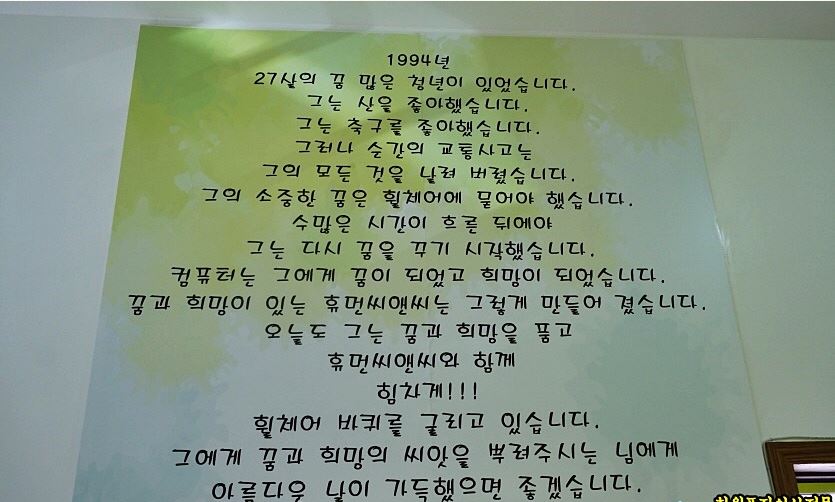 1994년
27살의 꿈 많은 청년이 있었습니다.
그는 산을 좋아했습니다.
그는 축구를 좋아했습니다.
그러나 순간의 교통사고는
그의 모든 것을 날려 버렸습니다.
그의 소중한 꿈은 휠체어에 묻어야 했습니다.
수많은 시간이 흐른 뒤에야
그는 다시 꿈을 꾸기 시작했습니다.
컴퓨터는 그에게 꿈이 되었고 희망이 되었습니다.
꿈과 희망이 있는 휴먼씨앤씨는 그렇게 만들어 졌습니다.
오늘도 그는 꿈과 희망을 품고
휴먼씨앤씨와 함께
힘차게!!!
휠체어 바퀴를 굴리고 있습니다.
그에게 꿈과 희망의 씨앗을 뿌려주시는 님에게
아름다운 날이 가득했으면 좋겠습니다.